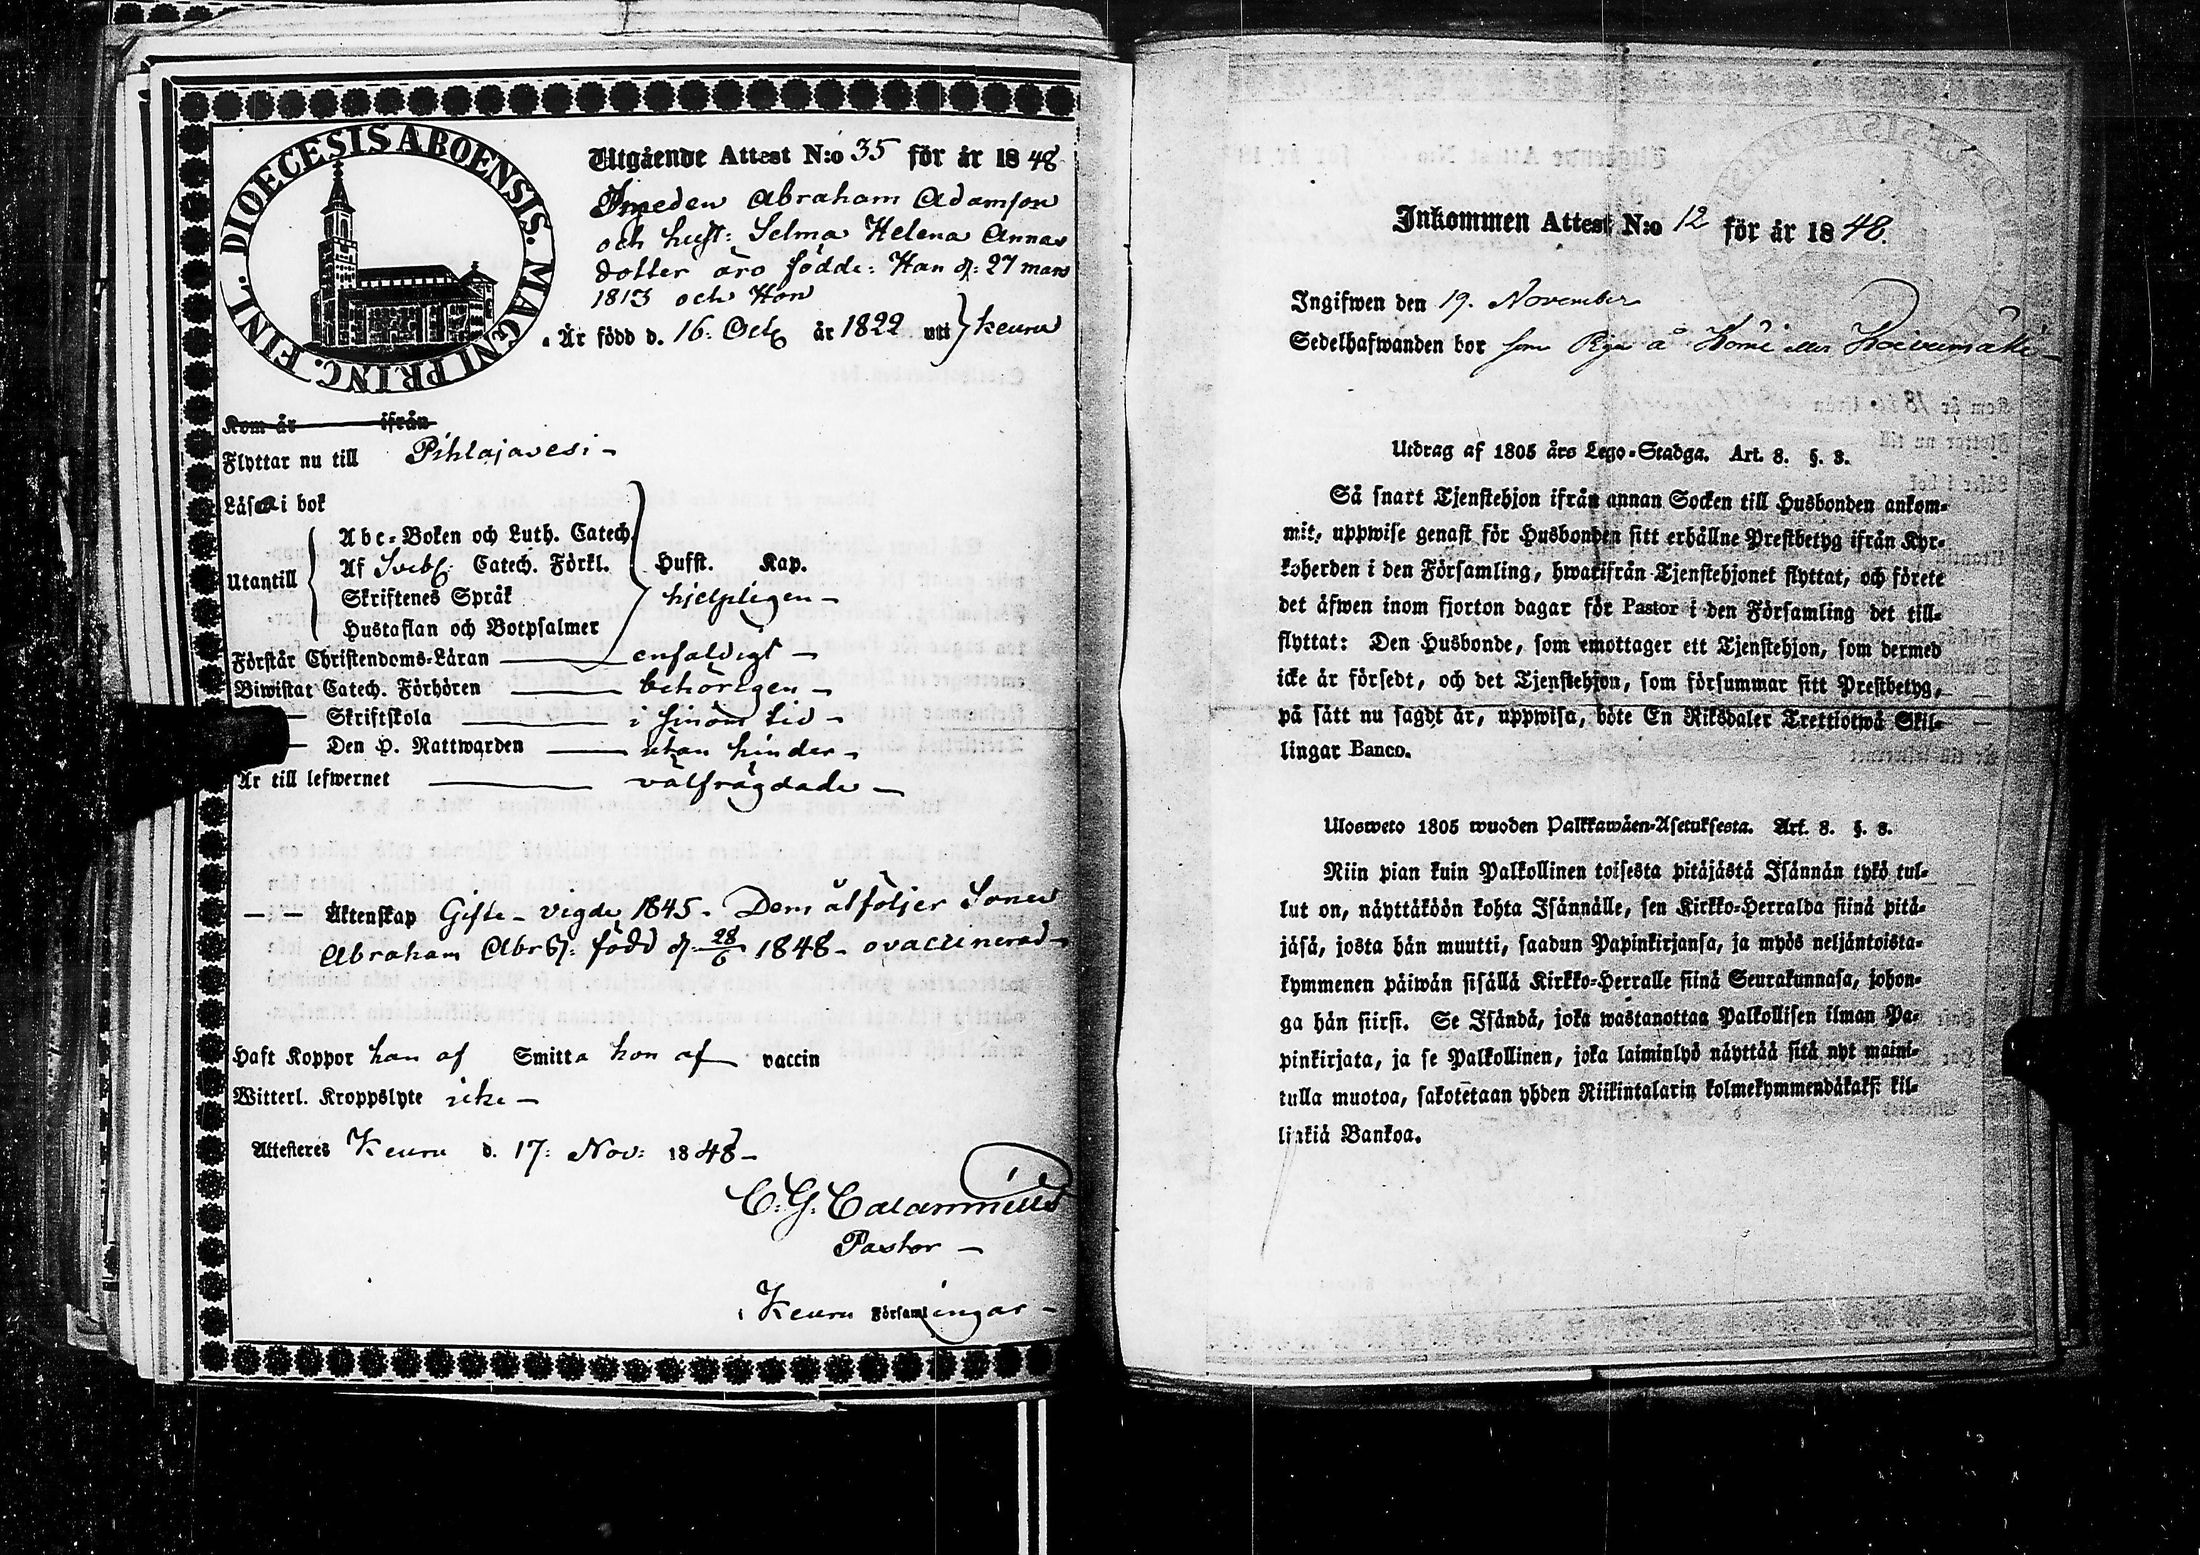 DIOECESIS ABOENSIS. MAGNI PRINC. FINL.
Utgående Attest N:o 35 för år 1848
Smeden Abraham Adamson
och hust: Selma Helena Annas
dotter äro födde: Han d: 27 mars
1813 och Hon
Är född d. 16: Oct år 1822 uti } Keuru
Kom år ifrån
Flyttar nu till Pihlajavesi –
Läsa i bok
Utantill
Abc-Boken och Luth. Catech.
Af Sveb: Catech. Förkl. Husst. Kap.
Skriftenes Språk hjelpligen –
Hustaflan och Botpsalmer
Förstår Christendoms-Läran enfaldigt –
Biwistat Catech. Förhören behörigen –
— Skriftskola i sinom tid –
— Den H. Nattwarden utan hinder –
Är till lefwernet välfrägdade –
— — Äktenskap Gifte – vigde 1845 – Dem åtföljer Sonen
Abraham Abrs: född d: 28/6 1848 – ovaccinerad –
Haft Koppor han af Smitta hon af vaccin
Witterl. Kroppslyte icke –
Attesteres Keuru d. 17: Nov: 1848 –
C. G. Calamnius
Pastor –
i Keuru Församlingar –
Inkommen Attest N:o 12 för år 1848.
Ingifwen den 19. November
Sedelhafwanden bor som å eller
Utdrag af 1805 års Lego-Stadga. Art. 8. §. 8.
Så snart Tjenstehjon ifrån annan Socken till Husbonden ankom-
mit, uppwise genast för Husbonden sitt erhållne Prestbetyg ifrån Kyr-
koherden i den Församling, hwarifrån Tjenstehjonet flyttat, och förete
det äfwen inom fjorton dagar för Pastor i den Församling det till-
flyttat: Den Husbonde, som emottager ett Tjenstehjon, som dermed
icke är försedt, och det Tjenstehjon, som försummar sitt Prestbetyg,
på sätt nu sagdt är, uppwisa, böte En Riksdaler Trettiotwå Skil-
lingar Banco.
Ulosweto 1805 wuoden Palkkawäen-Asetuksesta. Art. 8. §. 8.
Niin pian kuin Palkollinen toisesta pitäjästä Isännän tykö tul-
lut on, näyttäköön kohta Isännälle, sen Kirkko-Herralda siinä pitä-
jäsä, josta hän muutti, saadun Papinkirjansa, ja myös neljäntoista-
kymmenen päiwän sisällä Kirkko-Herralle siinä Seurakunnasa, johon-
ga hän siirsi. Se Isändä, joka wastanottaa Palkollisen ilman Pa-
pinkirjata, ja se Palkollinen, joka laiminlyö näyttää sitä nyt maini-
tulla muotoa, sakotetaan yhden Riikintalarin kolmekymmendäkaksi kil-
linkiä Bankoa.